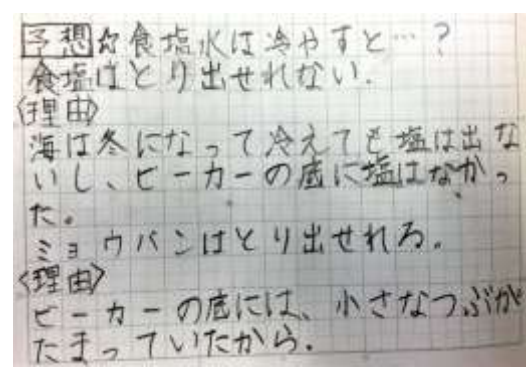 予想☆食塩水は冷やすと…?
食塩はとり出せれない.
〈理由〉
海は冬になって冷えても塩は出な
いし、ビーカーの底に塩はなかっ
た。
ミョウバンはとり出せれる。
〈理由〉
ビーカーの底には、小さなつぶが
たまっていたから.